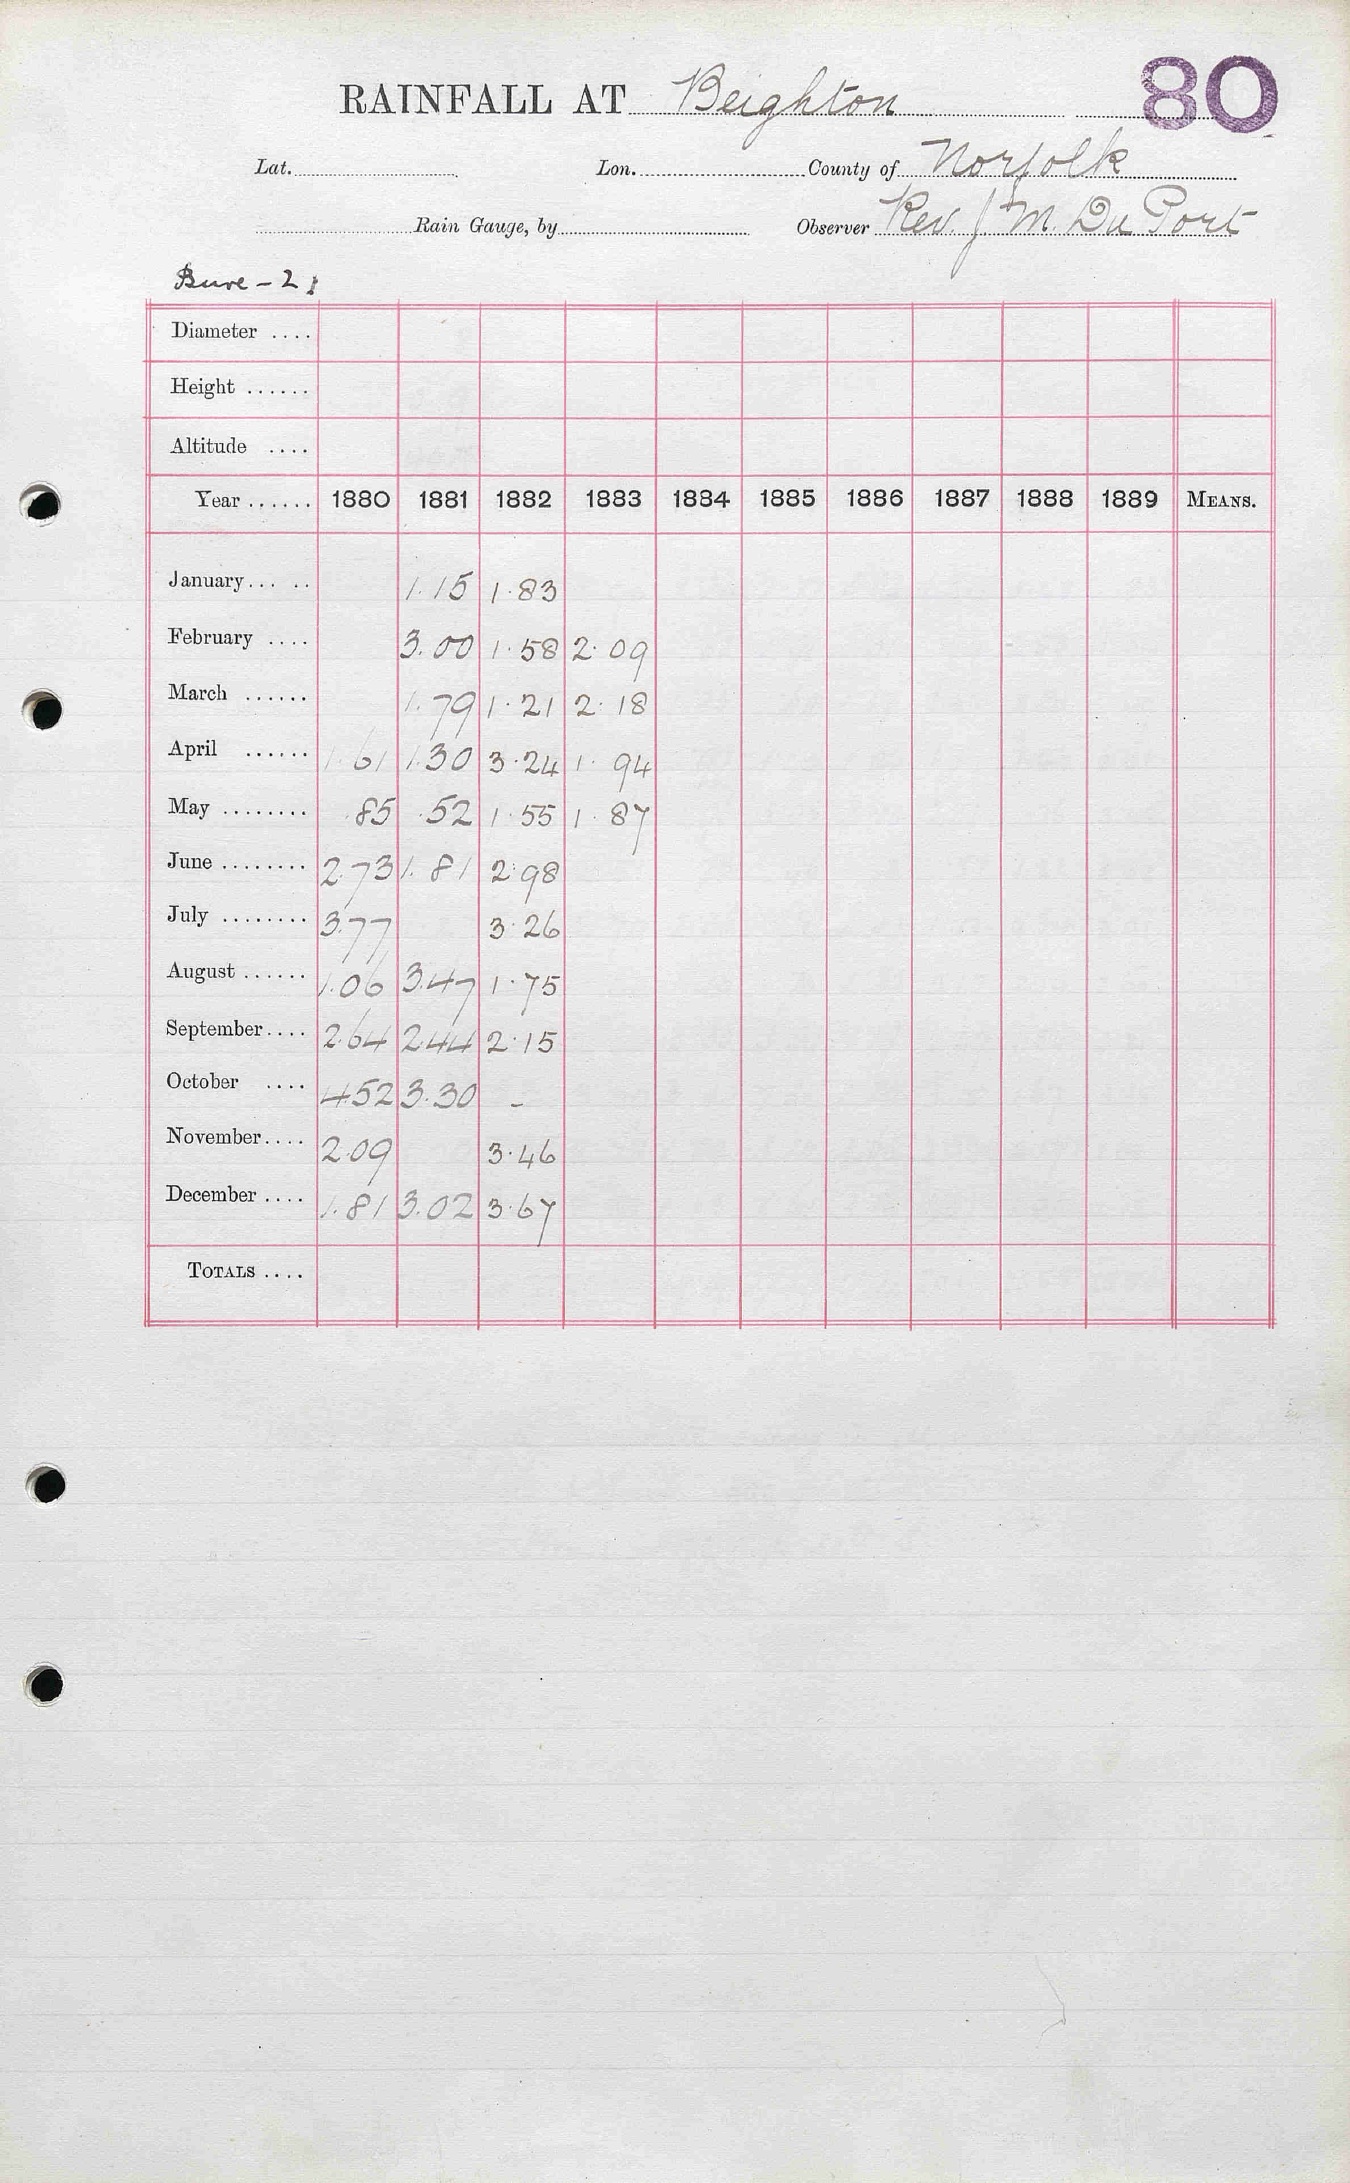 RAINFALL AT Beighton 80
Lat. Lon. County of Norfolk
Rain Gauge, by Observer Rev. J. M. Du Port
Bure - 2
Diameter ....
Height ......
Altitude ....
Year ...... 1880 1881 1882 1883 1884 1885 1886 1887 1888 1889 MEANS.
January... .. 1.15 1.83
February .... 3.00 1.58 2.09
March ...... 1.79 1.21 2.18
April ...... 1.61 1.30 3.24 1.94
May ........ .85 .52 1.55 1.87
June ........ 2.73 1.81 2.98
July ........ 3.77 3.26
August ...... 1.06 3.47 1.75
September.... 2.64 2.44 2.15
October .... 4.52 3.30 -
November.... 2.09 3.46
December .... 1.81 3.02 3.67
TOTALS ....